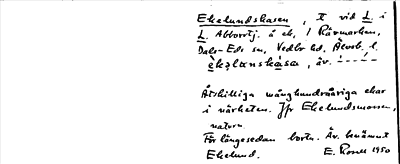 Ekelundskasen, I vid L. i
L. Abborrtj. å ek, 1 Rävmarken,
Dals-Eds sn, Vedbo hd, Älvsb. l.
av.
Åtskilliga månghundraåriga ekar
i närheten. Jfr Ekelundsmossen,
naturn.
För längesedan borta. Äv. benämnt
Ekelund. E. Rosell 1950